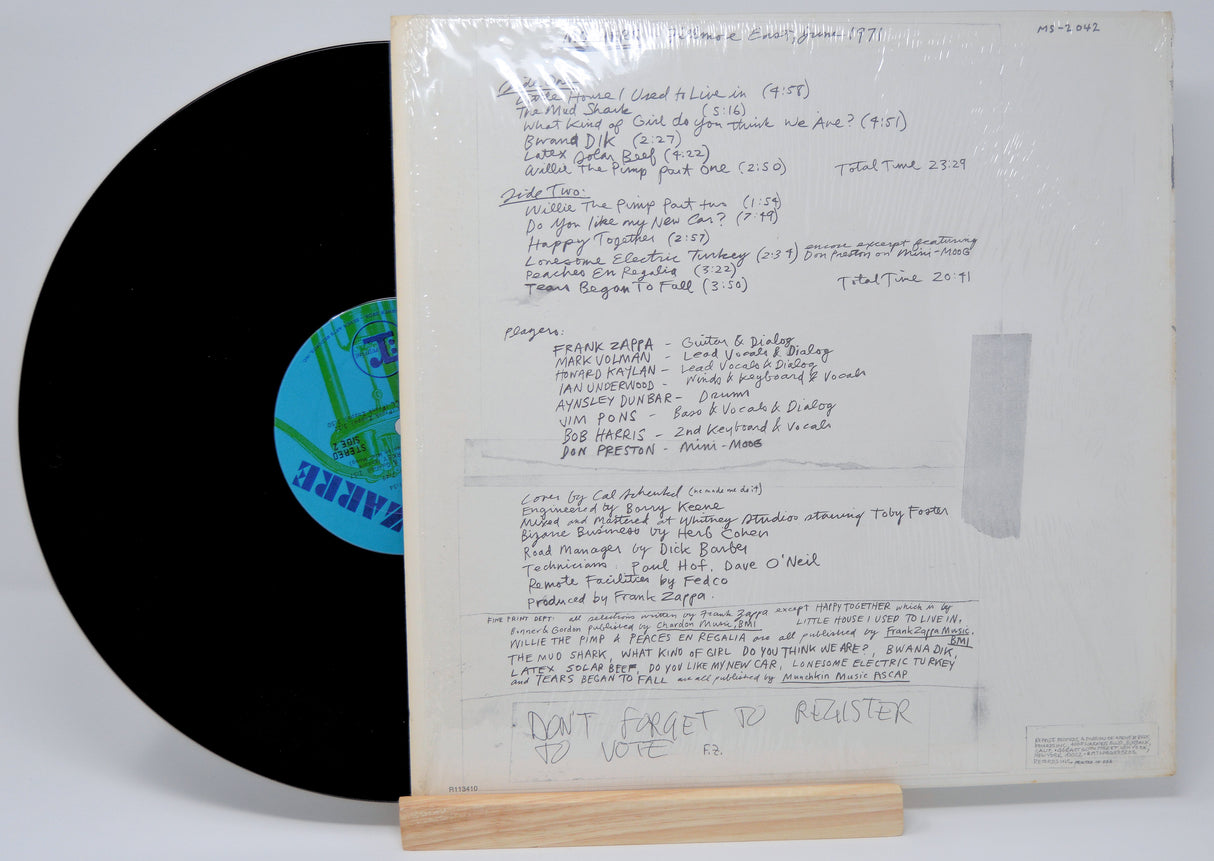 Fillmore East, June 1971
MS-2042
Side One:
Little House I Used to Live in (4:58)
The Mud Shark (5:16)
What Kind of Girl do you think we Are? (4:51)
Bwana DIK (2:27)
Latex Solar Beef (4:22)
Willie The Pimp part one (2:50) Total Time 23:29
Side Two:
Willie The Pimp Part two (1:54)
Do You like my New Car? (7:49)
Happy Together (2:57)
Lonesome Electric Turkey (2:34) encore excerpt featuring
Don Preston on Mini-MOOG
Peaches En Regalia (3:22)
Tears Began To Fall (3:50) Total Time 20:41
Players:
FRANK ZAPPA - Guitar & Dialog
MARK VOLMAN - Lead Vocals & Dialog
HOWARD KAYLAN - Lead Vocals & Dialog
IAN UNDERWOOD - Winds & Keyboard & Vocals
AYNSLEY DUNBAR - Drums
JIM PONS - Bass & Vocals & Dialog
BOB HARRIS - 2nd Keyboard & Vocals
DON PRESTON - Mini-MOOG
Cover by Cal Schenkel (he made me do it)
Engineered by Barry Keene
Mixed and Mastered at Whitney Studios starring Toby Foster
Bizarre Business by Herb Cohen
Road Manager by Dick Barber
Technicians: Paul Hof, Dave O'Neil
Remote Facilities by Fedco
Produced by Frank Zappa.
FINE PRINT DEPT: all selections written by Frank Zappa except HAPPY TOGETHER which is by
Bonner & Gordon published by Chardon Music, BMI LITTLE HOUSE I USED TO LIVE IN,
WILLIE THE PIMP & PEACES EN REGALIA are all published by Frank Zappa Music,
BMI
THE MUD SHARK, WHAT KIND OF GIRL DO YOU THINK WE ARE?, BWANA DIK,
LATEX SOLAR BEEF, DO YOU LIKE MY NEW CAR, LONESOME ELECTRIC TURKEY
and TEARS BEGAN TO FALL are all published by Munchkin Music ASCAP
DON'T FORGET TO REGISTER
TO VOTE F.Z.
PRINTED IN USA
R113410
STEREO
SIDE 2
ZARRE